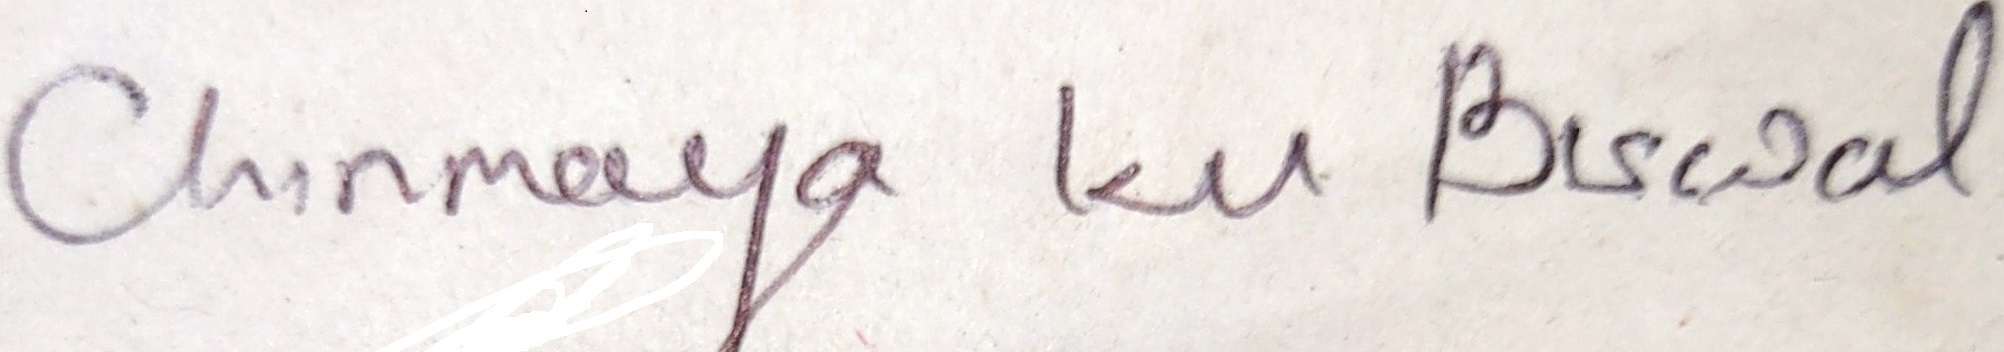 Chinmaya ku Biswal